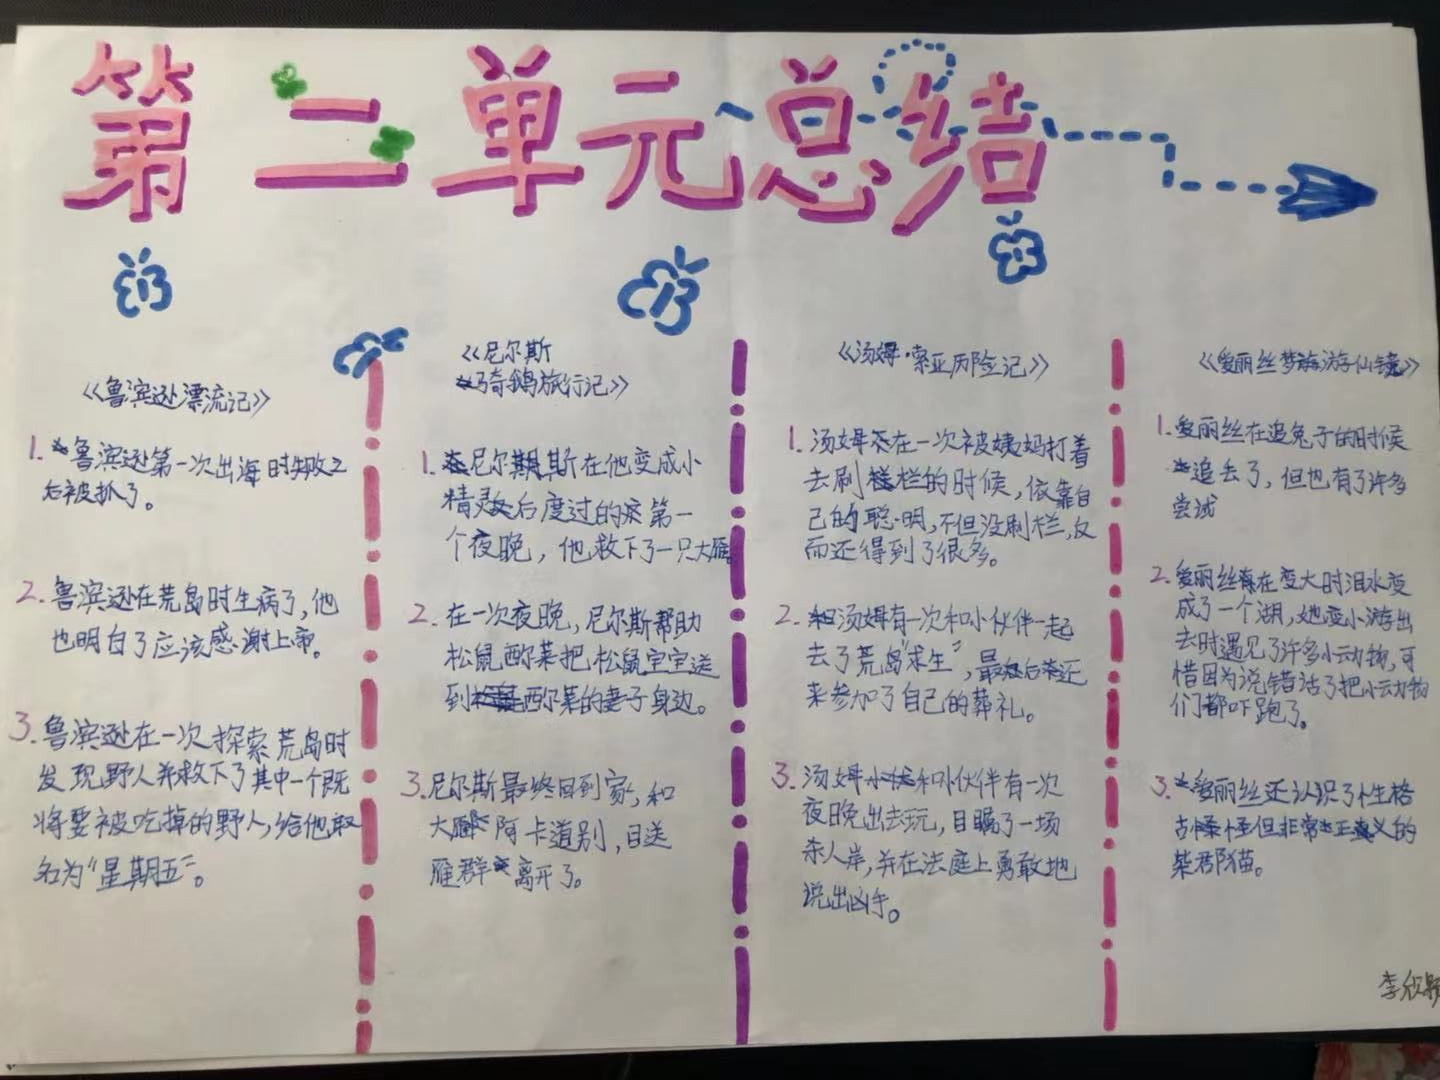 第二单元总结
《鲁滨逊漂流记》
1.鲁滨逊第一次出海时失败之
后被抓了。
2.鲁滨逊在荒岛时生病了,他
也明白了应该感谢上帝。
3.鲁滨逊在一次探索荒岛时
发现野人并救下了其中一个既
将要被吃掉的野人,给他取
名为“星期五”。
《尼尔斯
骑鹅旅行记》
1.尼尔斯在他变成小
精灵后度过的第一
个夜晚,他救下了一只大雁。
2.在一次夜晚,尼尔斯帮助
松鼠西尔莱把松鼠宝宝送
到西尔莱的妻子身边。
3.尼尔斯最终回到家,和
大雁阿卡道别,目送
雁群离开了。
《汤姆·索亚历险记》
1.汤姆在一次被姨妈打着
去刷栏的时候,依靠自
己的聪明,不但没刷栏,反
而还得到了很多。
2.汤姆有一次和小伙伴一起
去了荒岛“求生”,最后还
来参加了自己的葬礼。
3.汤姆和小伙伴有一次
夜晚出去玩,目睹了一场
杀人岸,并在法庭上勇敢地
说出凶手。
《爱丽丝梦游仙镜》
1.爱丽丝在追兔子的时候
追丢了,但也有了许多
尝试
2.爱丽丝在变大时泪水变
成了一个湖,她变小游出
去时遇见了许多小动物,可
惜因为说错话了把小动物
们都吓跑了。
3.爱丽丝还认识了个性格
古怪但非常正义的
柴郡猫。